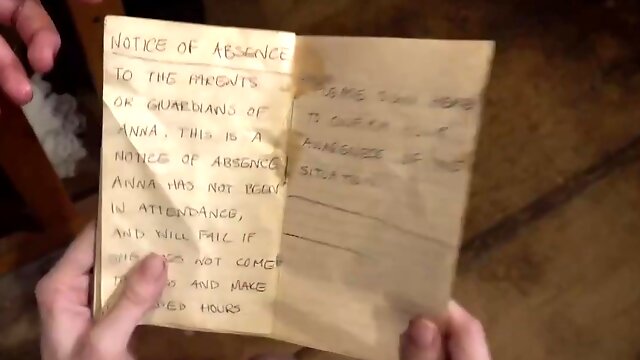 NOTICE OF ABSENCE
TO THE PARENTS
OR GUARDIANS OF
ANNA. THIS IS A
NOTICE OF ABSENCE
ANNA HAS NOT BEEN
IN ATTENDANCE,
AND WILL FAIL IF
SHE DOES NOT COME
AND MAKE
HOURS
PLEASE SIGN HERE
TO CONFIRM YOUR
AWARENESS OF THE
SITUATION